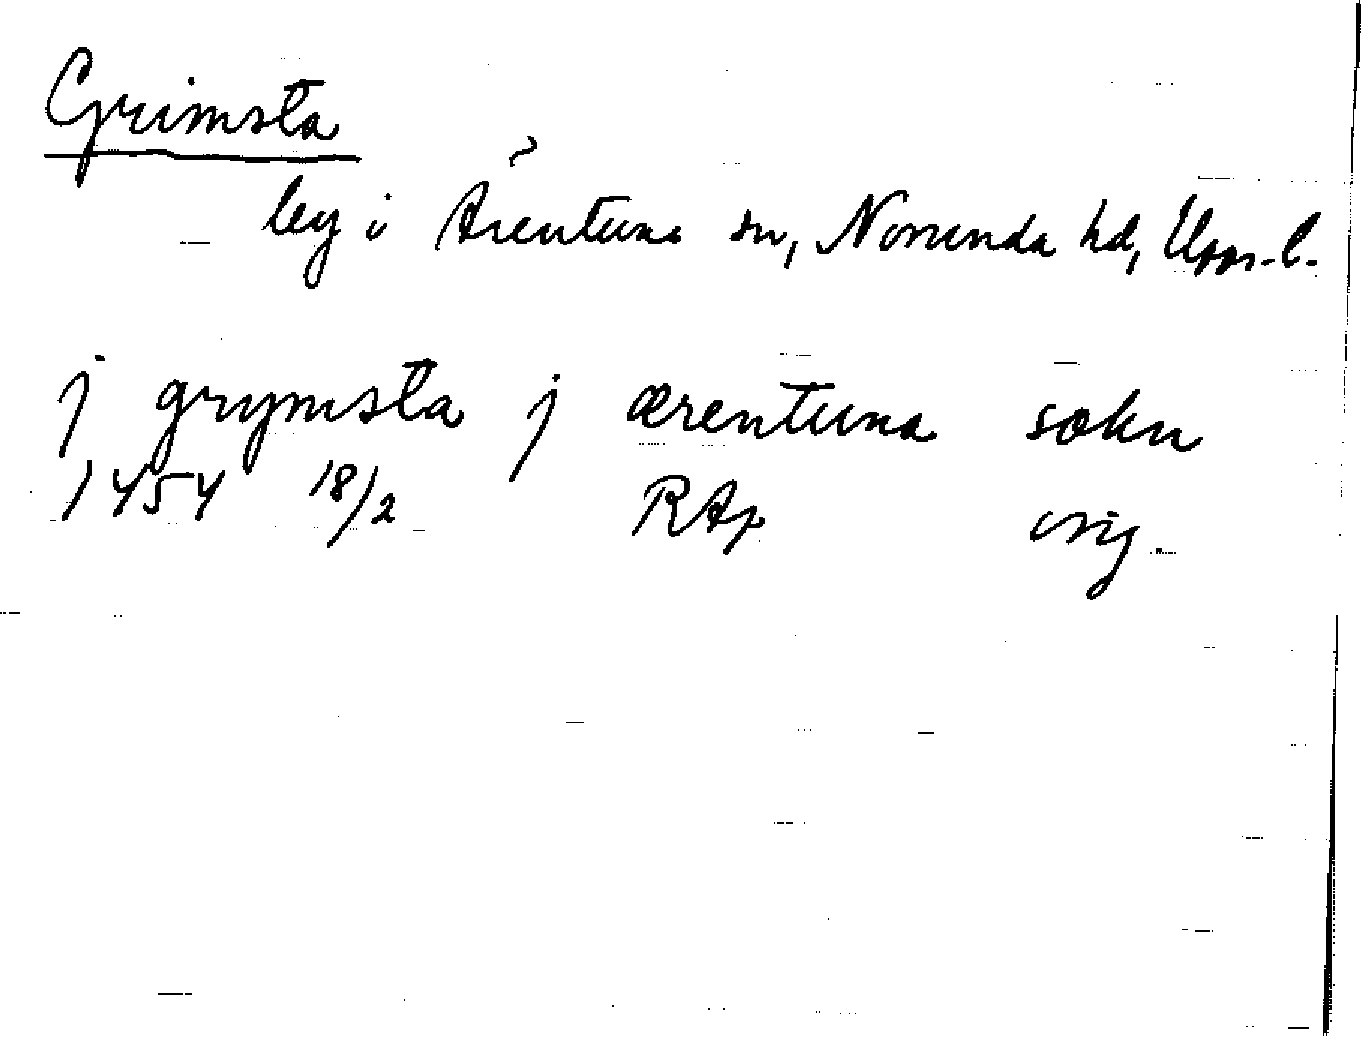 Grimsta
by i Ärentuna sn, Norunda hd, Upps. l.
j grymsta j ærentuna sokn
1454 18/2 RAp orig.